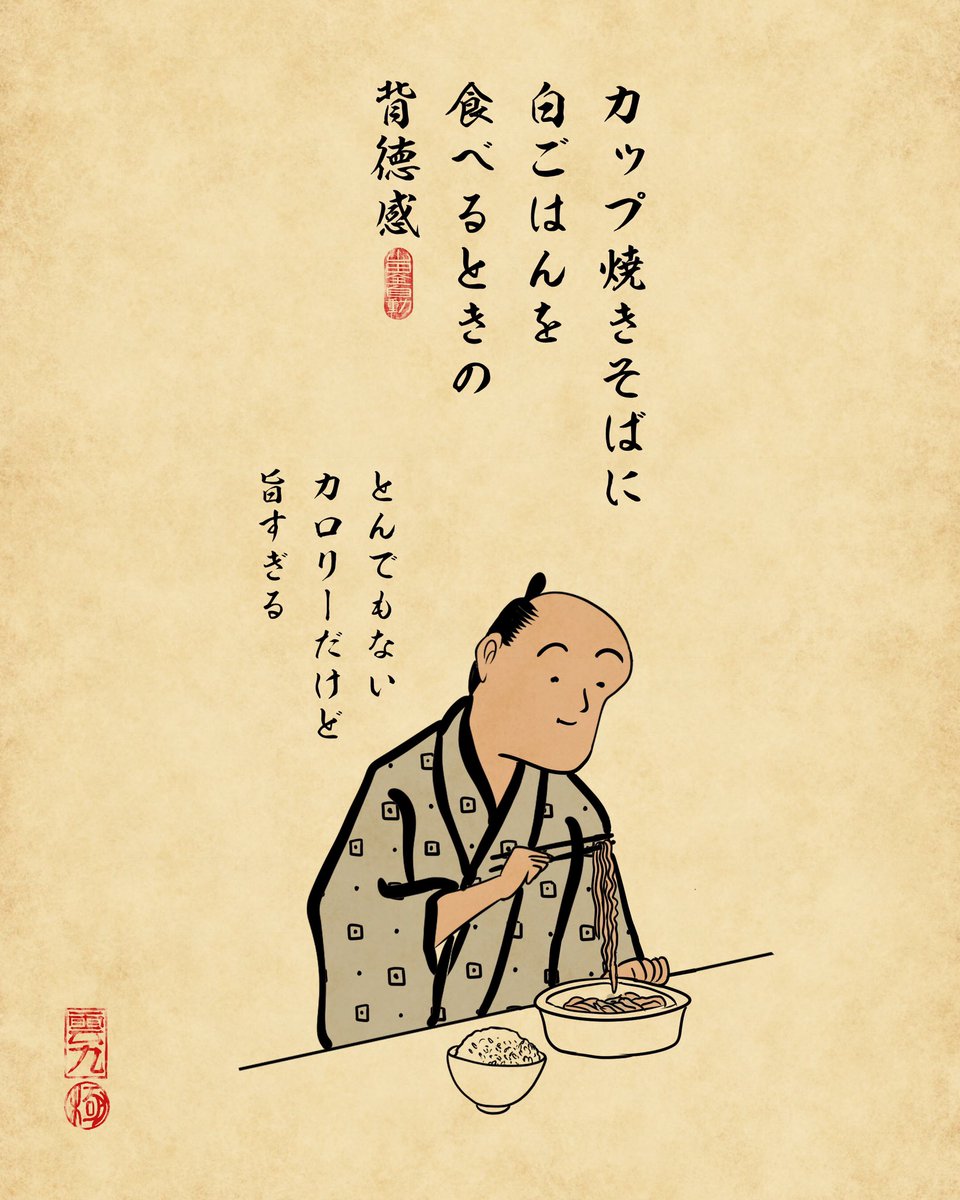 カップ焼きそばに
白ごはんを
食べるときの
背徳感
とんでもない
カロリーだけど
旨すぎる